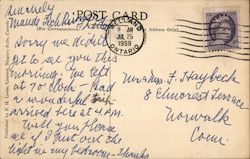 Sincerely
POST CARD
(For Correspondence)
(Address Only)
WELLAND
9 AM
JUL 25
1959
ONTARIO
Sorry we didn't
get to see you this
morning. We left
at 7 o'clock. Had
a wonderful
arrived here at 4 P.M.
Will you please
see if I put out the
light in my bedroom - Thanks
Mr & Mrs. F. Haybeck
8 Elmcrest Terrace
Norwalk
Conn.